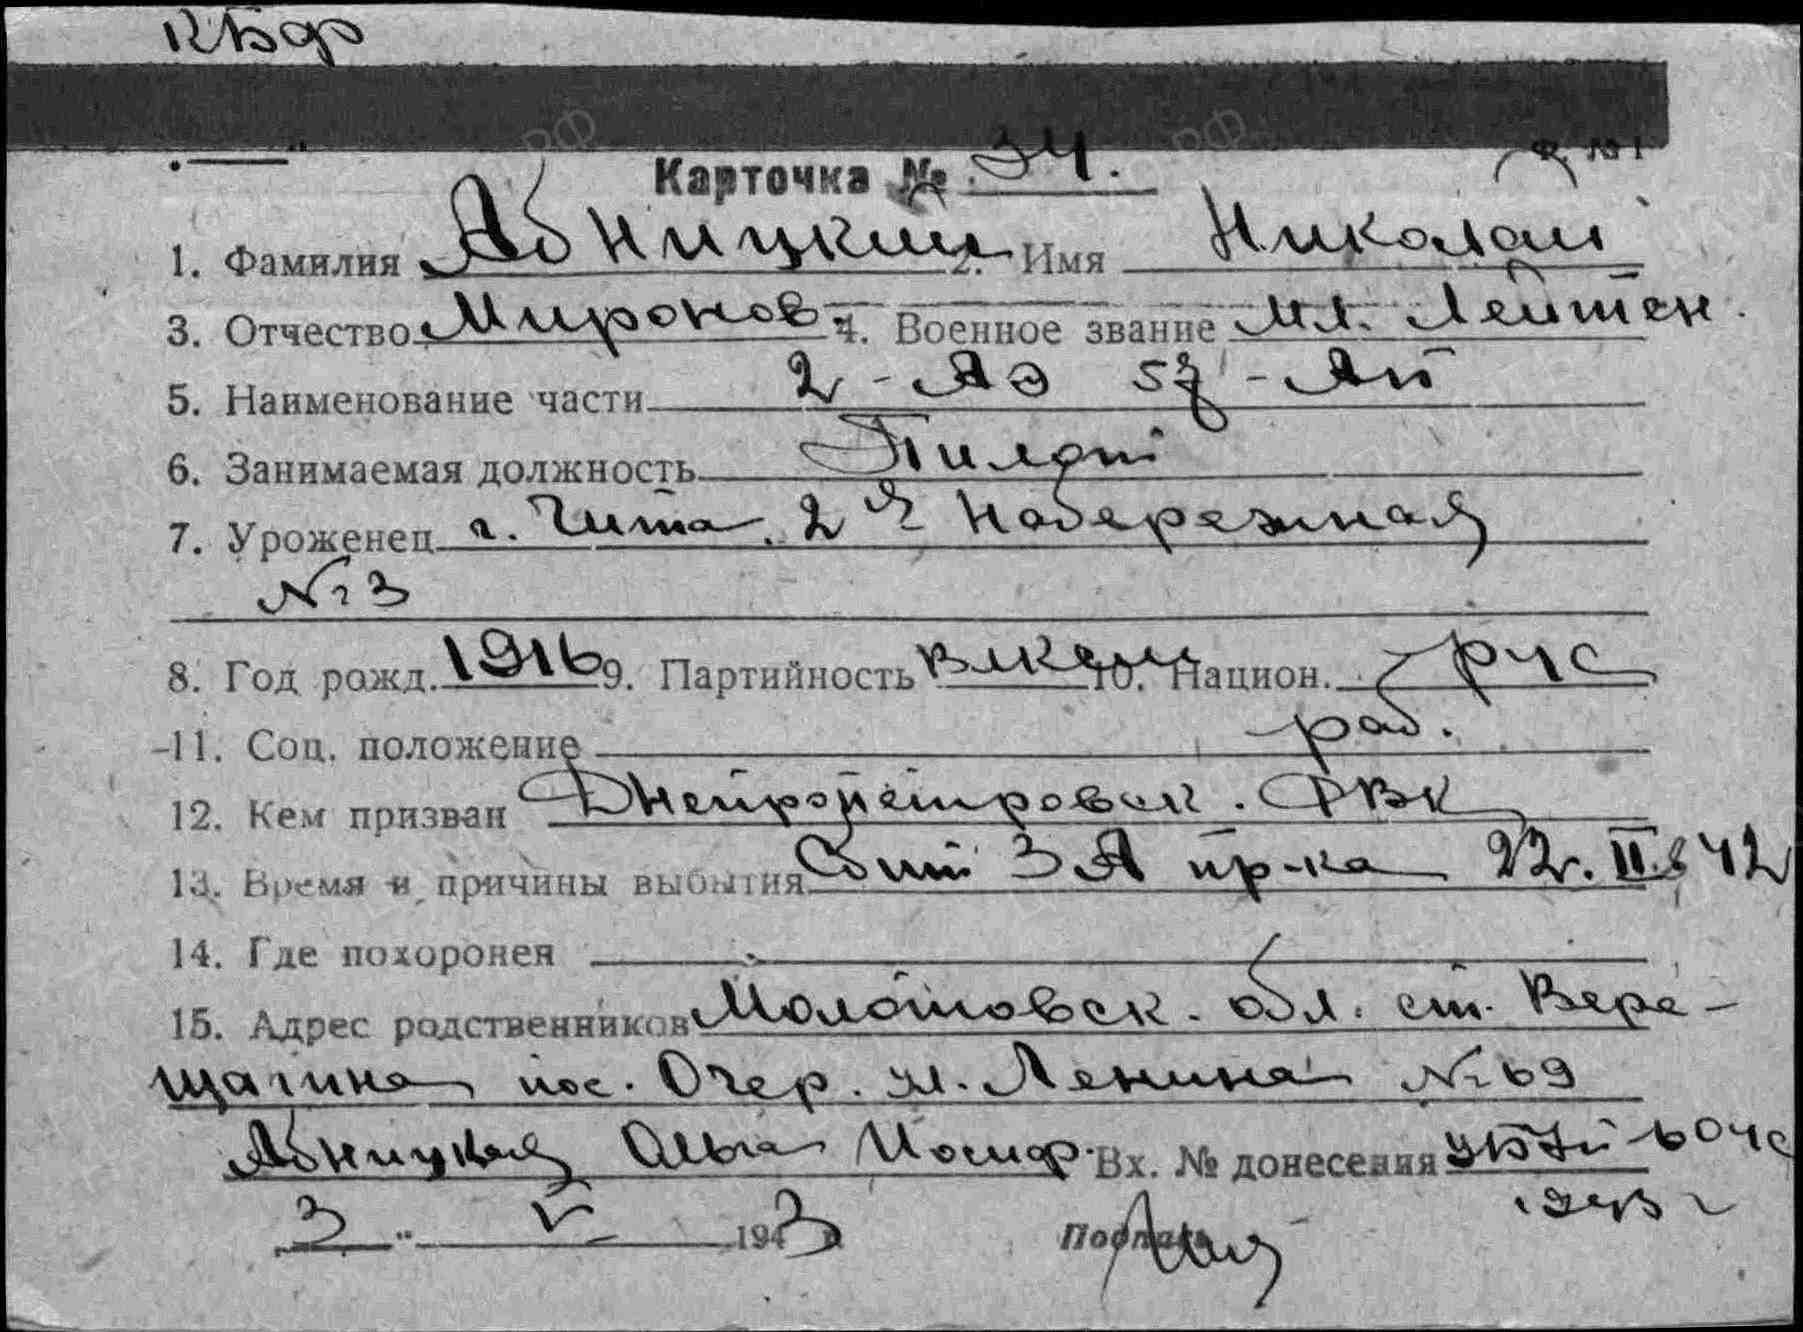 КБФ
Ф. № 1
Карточка № 34.
1. Фамилия Абницкий 2. Имя Николай
3. Отчество Миронов. 4. Военное звание Мл. Лейтен.
5. Наименование части 2-АЭ 57-АП
6. Занимаемая должность Пилот
7. Уроженец г. Чита. 2я Набережная
№ 3
8. Год рожд. 1916 9. Партийность ВЛКСМ 10. Национ. рус
11. Соц. положение раб.
12. Кем призван Днепропетровск. ФВК
13. Время и причины выбытия Сбит ЗА пр-ка 22.II.42
14. Где похоронен
15. Адрес родственников Молотовск. обл. ст. Вере-
щагино пос. Очер. ул. Ленина № 69
Абницкая Ольга Иосиф. Вх. № донесения 604с
3 " V 1943 Подпись 1943 г